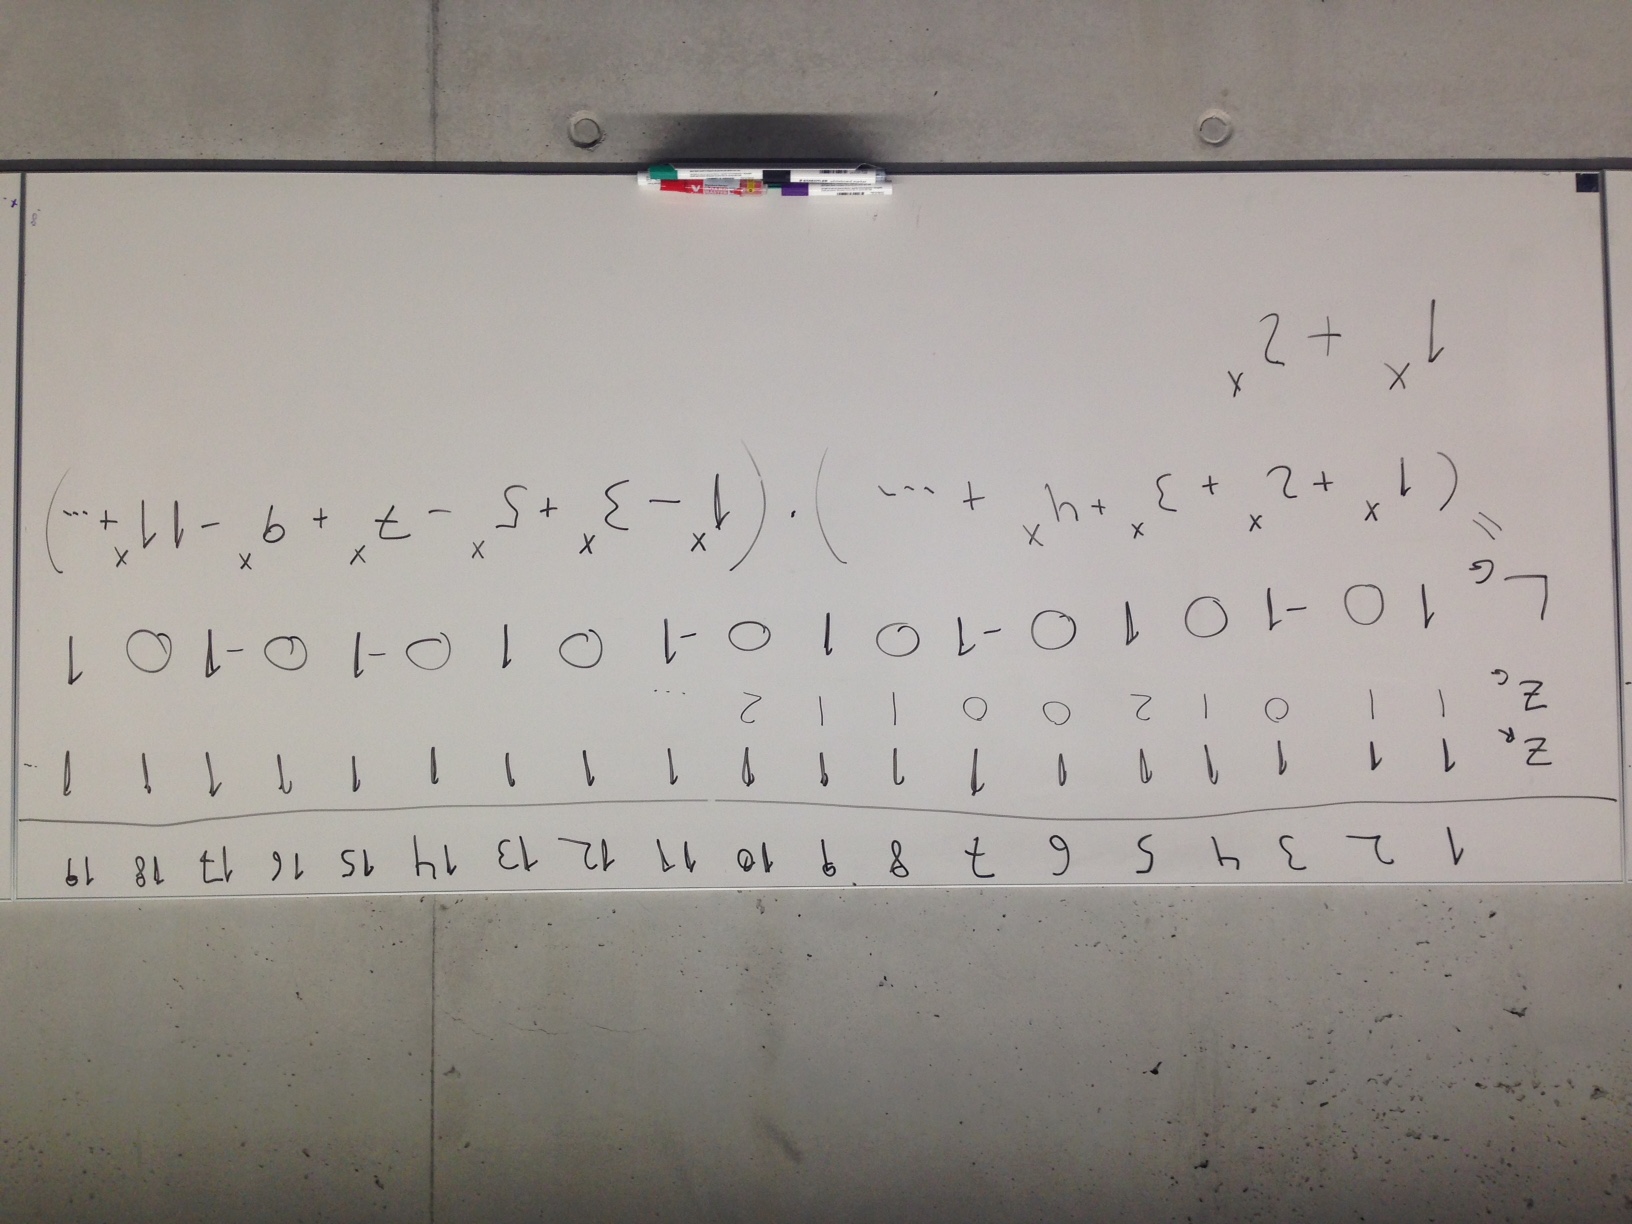 1 2 3 4 5 6 7 8 9 10 11 12 13 14 15 16 17 18 19
Z_R 1 1 1 1 1 1 1 1 1 1 1 1 1 1 1 1 1 1 1 ...
Z_G 1 1 0 1 2 0 0 1 1 2 ...
L_G 1 0 -1 0 1 0 -1 0 1 0 -1 0 1 0 -1 0 -1 0 1
= (1^x + 2^x + 3^x + 4^x + ...) · (1^x - 3^x + 5^x - 7^x + 9^x - 11^x + ...)
1^x + 2^x